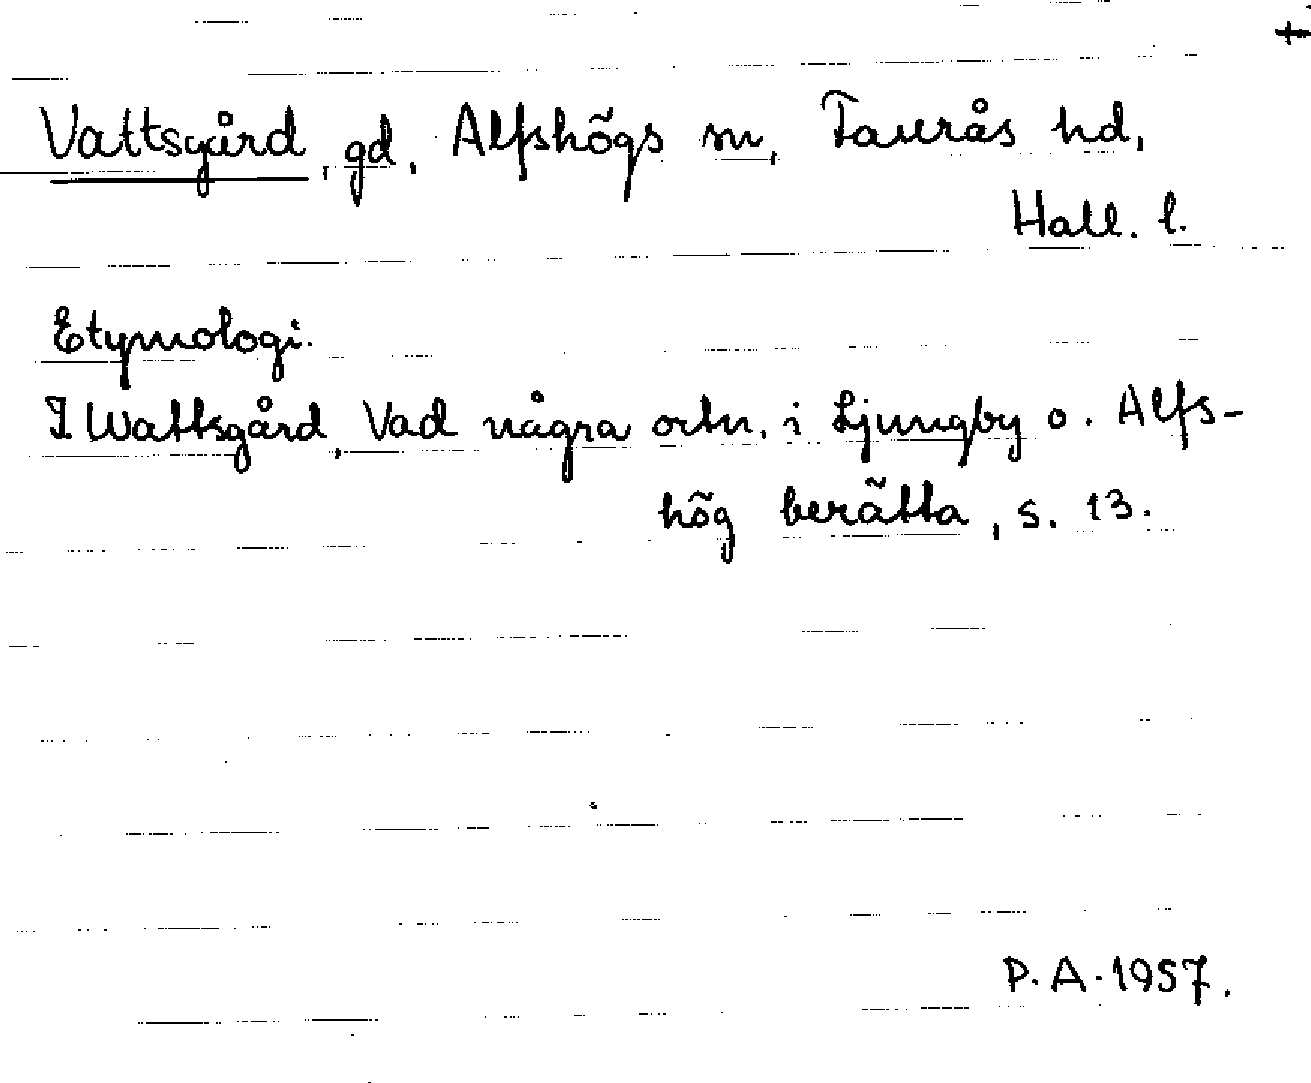 Vattsgård, gd, Alfshögs sn, Faurås hd,
Hall. l.
Etymologi.
I Wattsgård, Vad några ortn. i Ljungby o. Alfs-
hög berätta, s. 13.
P. A. 1957.